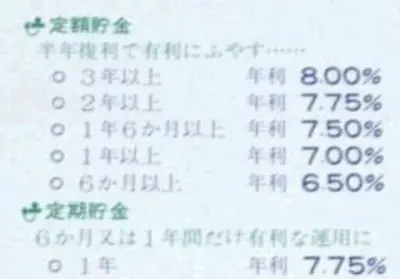 定額貯金
半年複利で有利にふやす……
○ 3年以上 年利 8.00%
○ 2年以上 年利 7.75%
○ 1年6か月以上 年利 7.50%
○ 1年以上 年利 7.00%
○ 6か月以上 年利 6.50%
定期貯金
6か月又は1年間だけ有利な運用に
○ 1年 年利 7.75%